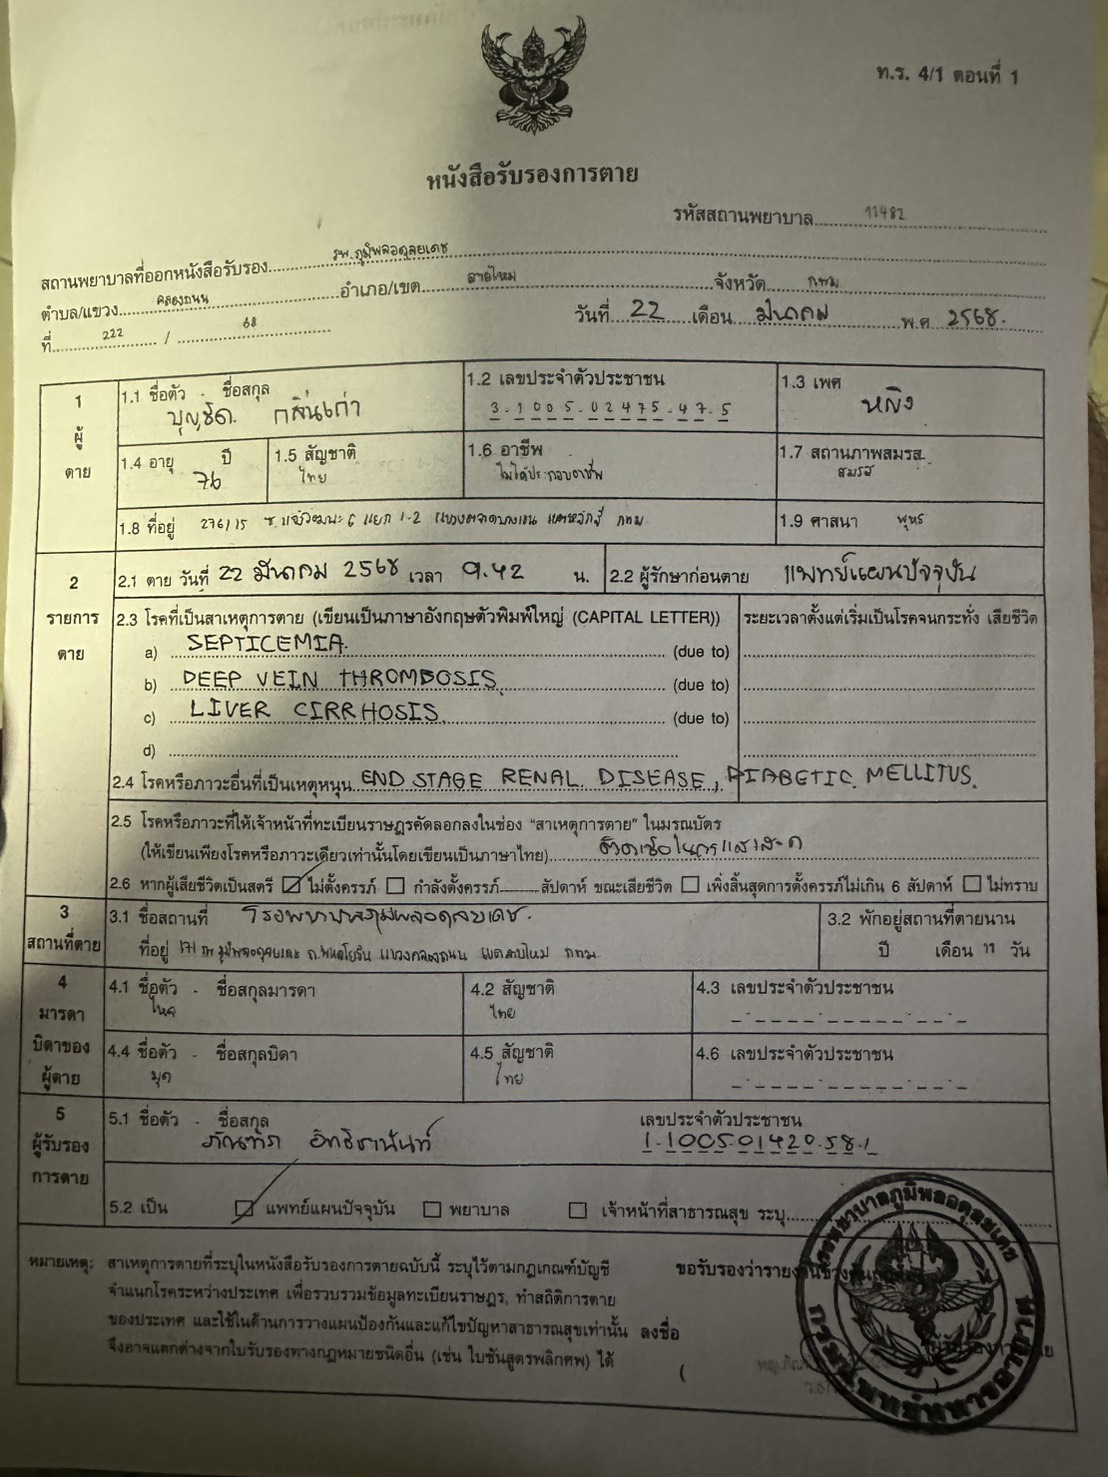 ท.ร. 4/1 ตอนที่ 1
หนังสือรับรองการตาย
รหัสสถานพยาบาล 11482
สถานพยาบาลที่ออกหนังสือรับรอง รพ.ภูมิพลอดุลยเดช
ตำบล/แขวง คลองถนน อำเภอ/เขต สายไหม จังหวัด กทม
ที่ 222 / 68 วันที่ 22 เดือน มีนาคม พ.ศ 2568.
1 ผู้ตาย
1.1 ชื่อตัว - ชื่อสกุล บุญชิด กลิ่นเก่า 1.2 เลขประจำตัวประชาชน 3-1005-02475-47-5 1.3 เพศ หญิง
1.4 อายุ 76 ปี 1.5 สัญชาติ ไทย 1.6 อาชีพ ไม่ได้ประกอบอาชีพ 1.7 สถานภาพสมรส สมรส
1.8 ที่อยู่ 276/15 ซ.แจ้งวัฒนะ 6 แยก 1-2 แขวงตลาดบางเขน เขตหลักสี่ กทม 1.9 ศาสนา พุทธ
2 รายการตาย
2.1 ตาย วันที่ 22 มีนาคม 2568 เวลา 9.42 น. 2.2 ผู้รักษาก่อนตาย แพทย์แผนปัจจุบัน
2.3 โรคที่เป็นสาเหตุการตาย (เขียนเป็นภาษาอังกฤษตัวพิมพ์ใหญ่ (CAPITAL LETTER)) ระยะเวลาตั้งแต่เริ่มเป็นโรคจนกระทั่ง เสียชีวิต
a) SEPTICEMIA. (due to)
b) DEEP VEIN THROMBOSIS (due to)
c) LIVER CIRRHOSIS (due to)
d)
2.4 โรคหรือภาวะอื่นที่เป็นเหตุหนุน END STAGE RENAL DISEASE, DIABETIC MELLITUS.
2.5 โรคหรือภาวะที่ให้เจ้าหน้าที่ทะเบียนราษฎรคัดลอกลงในช่อง "สาเหตุการตาย" ในมรณบัตร
(ให้เขียนเพียงโรคหรือภาวะเดียวเท่านั้นโดยเขียนเป็นภาษาไทย) ติดเชื้อในกระแสเลือด
2.6 หากผู้เสียชีวิตเป็นสตรี ไม่ตั้งครรภ์ กำลังตั้งครรภ์ สัปดาห์ ขณะเสียชีวิต เพิ่งสิ้นสุดการตั้งครรภ์ไม่เกิน 6 สัปดาห์ ไม่ทราบ
3 สถานที่ตาย
3.1 ชื่อสถานที่ โรงพยาบาลภูมิพลอดุลยเดช. 3.2 พักอยู่สถานที่ตายนาน
ที่อยู่ 171 รพ ภูมิพลอดุลยเดช ถ.พหลโยธิน แขวงคลองถนน เขตสายไหม กทม. ปี เดือน 11 วัน
4 มารดา บิดาของผู้ตาย
4.1 ชื่อตัว - ชื่อสกุลมารดา 4.2 สัญชาติ ไทย 4.3 เลขประจำตัวประชาชน
4.4 ชื่อตัว - ชื่อสกุลบิดา 4.5 สัญชาติ ไทย 4.6 เลขประจำตัวประชาชน
5 ผู้รับรองการตาย
5.1 ชื่อตัว - ชื่อสกุล เลขประจำตัวประชาชน
1-1005-01420-58-1
5.2 เป็น แพทย์แผนปัจจุบัน พยาบาล เจ้าหน้าที่สาธารณสุข ระบุ
หมายเหตุ: สาเหตุการตายที่ระบุในหนังสือรับรองการตายฉบับนี้ ระบุไว้ตามกฎเกณฑ์บัญชี
จำแนกโรคระหว่างประเทศ เพื่อรวบรวมข้อมูลทะเบียนราษฎร, ทำสถิติการตาย
ของประเทศ และใช้ในด้านการวางแผนป้องกันและแก้ไขปัญหาสาธารณสุขเท่านั้น
จึงอาจแตกต่างจากใบรับรองทางกฎหมายชนิดอื่น (เช่น ใบชันสูตรพลิกศพ) ได้
ขอรับรองว่ารายงานข้างต้น
ลงชื่อ
(
โรงพยาบาลภูมิพลอดุลยเดช
กรมแพทย์ทหารอากาศ